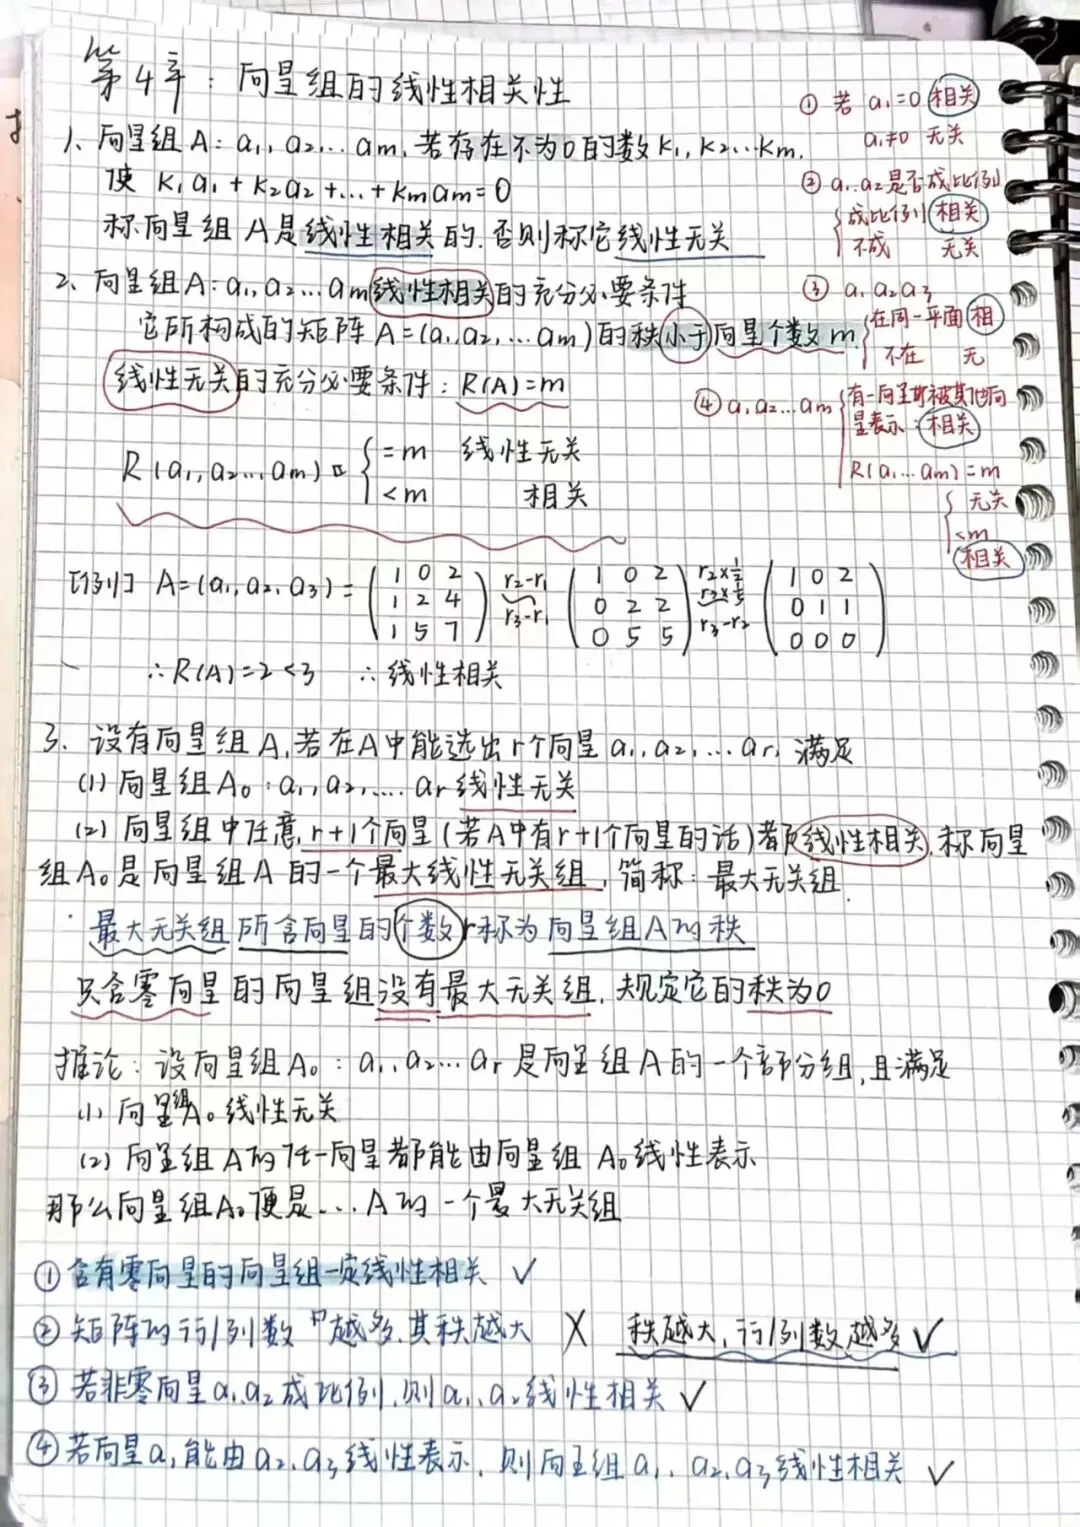 第4章：向量组的线性相关性
1、向量组A：a₁，a₂…am，若存在不为0的数K₁，K₂…Km，
使 K₁a₁+K₂a₂+…+Kmam=0
称向量组A是线性相关的，否则称它线性无关
① 若 a₁=0 相关
a₁≠0 无关
② a₁、a₂是否成比例
成比例 相关
不成 无关
2、向量组A：a₁，a₂…am线性相关的充分必要条件
它所构成的矩阵A=(a₁，a₂，…am)的秩小于向量个数m
线性无关的充分必要条件：R(A)=m
R(a₁，a₂…am) { =m 线性无关
<m 相关
③ a₁ a₂ a₃
在同一平面 相
不在 无
④ a₁ a₂…am 有一向量能被其他向
量表示：相关
R(a₁…am)=m
无关
<m
相关
[例] A=(a₁，a₂，a₃)= (1 0 2 r₂-r₁ (1 0 2 r₂×½ (1 0 2
1 2 4 r₃-r₁ 0 2 2 r₃×⅕ 0 1 1
1 5 7) 0 5 5) r₃-r₂ 0 0 0)
∴R(A)=2<3 ∴线性相关
3、设有向量组A，若在A中能选出r个向量a₁，a₂，…ar，满足
(1) 向量组A₀：a₁，a₂，…ar线性无关
(2) 向量组中任意r+1个向量(若A中有r+1个向量的话)都线性相关，称向量
组A₀是向量组A的一个最大线性无关组，简称：最大无关组
最大无关组所含向量的个数r称为向量组A的秩
只含零向量的向量组没有最大无关组，规定它的秩为0
推论：设向量组A₀：a₁，a₂…ar是向量组A的一个部分组，且满足
(1) 向量组A₀线性无关
(2) 向量组A的任一向量都能由向量组A₀线性表示
那么向量组A₀便是…A的一个最大无关组
① 含有零向量的向量组一定线性相关 ✓
② 矩阵的行/列数越多，其秩越大 X 秩越大，行/列数越多 ✓
③ 若非零向量a₁，a₂成比例，则a₁，a₂线性相关 ✓
④ 若向量a₁能由a₂，a₃线性表示，则向量组a₁，a₂，a₃线性相关 ✓